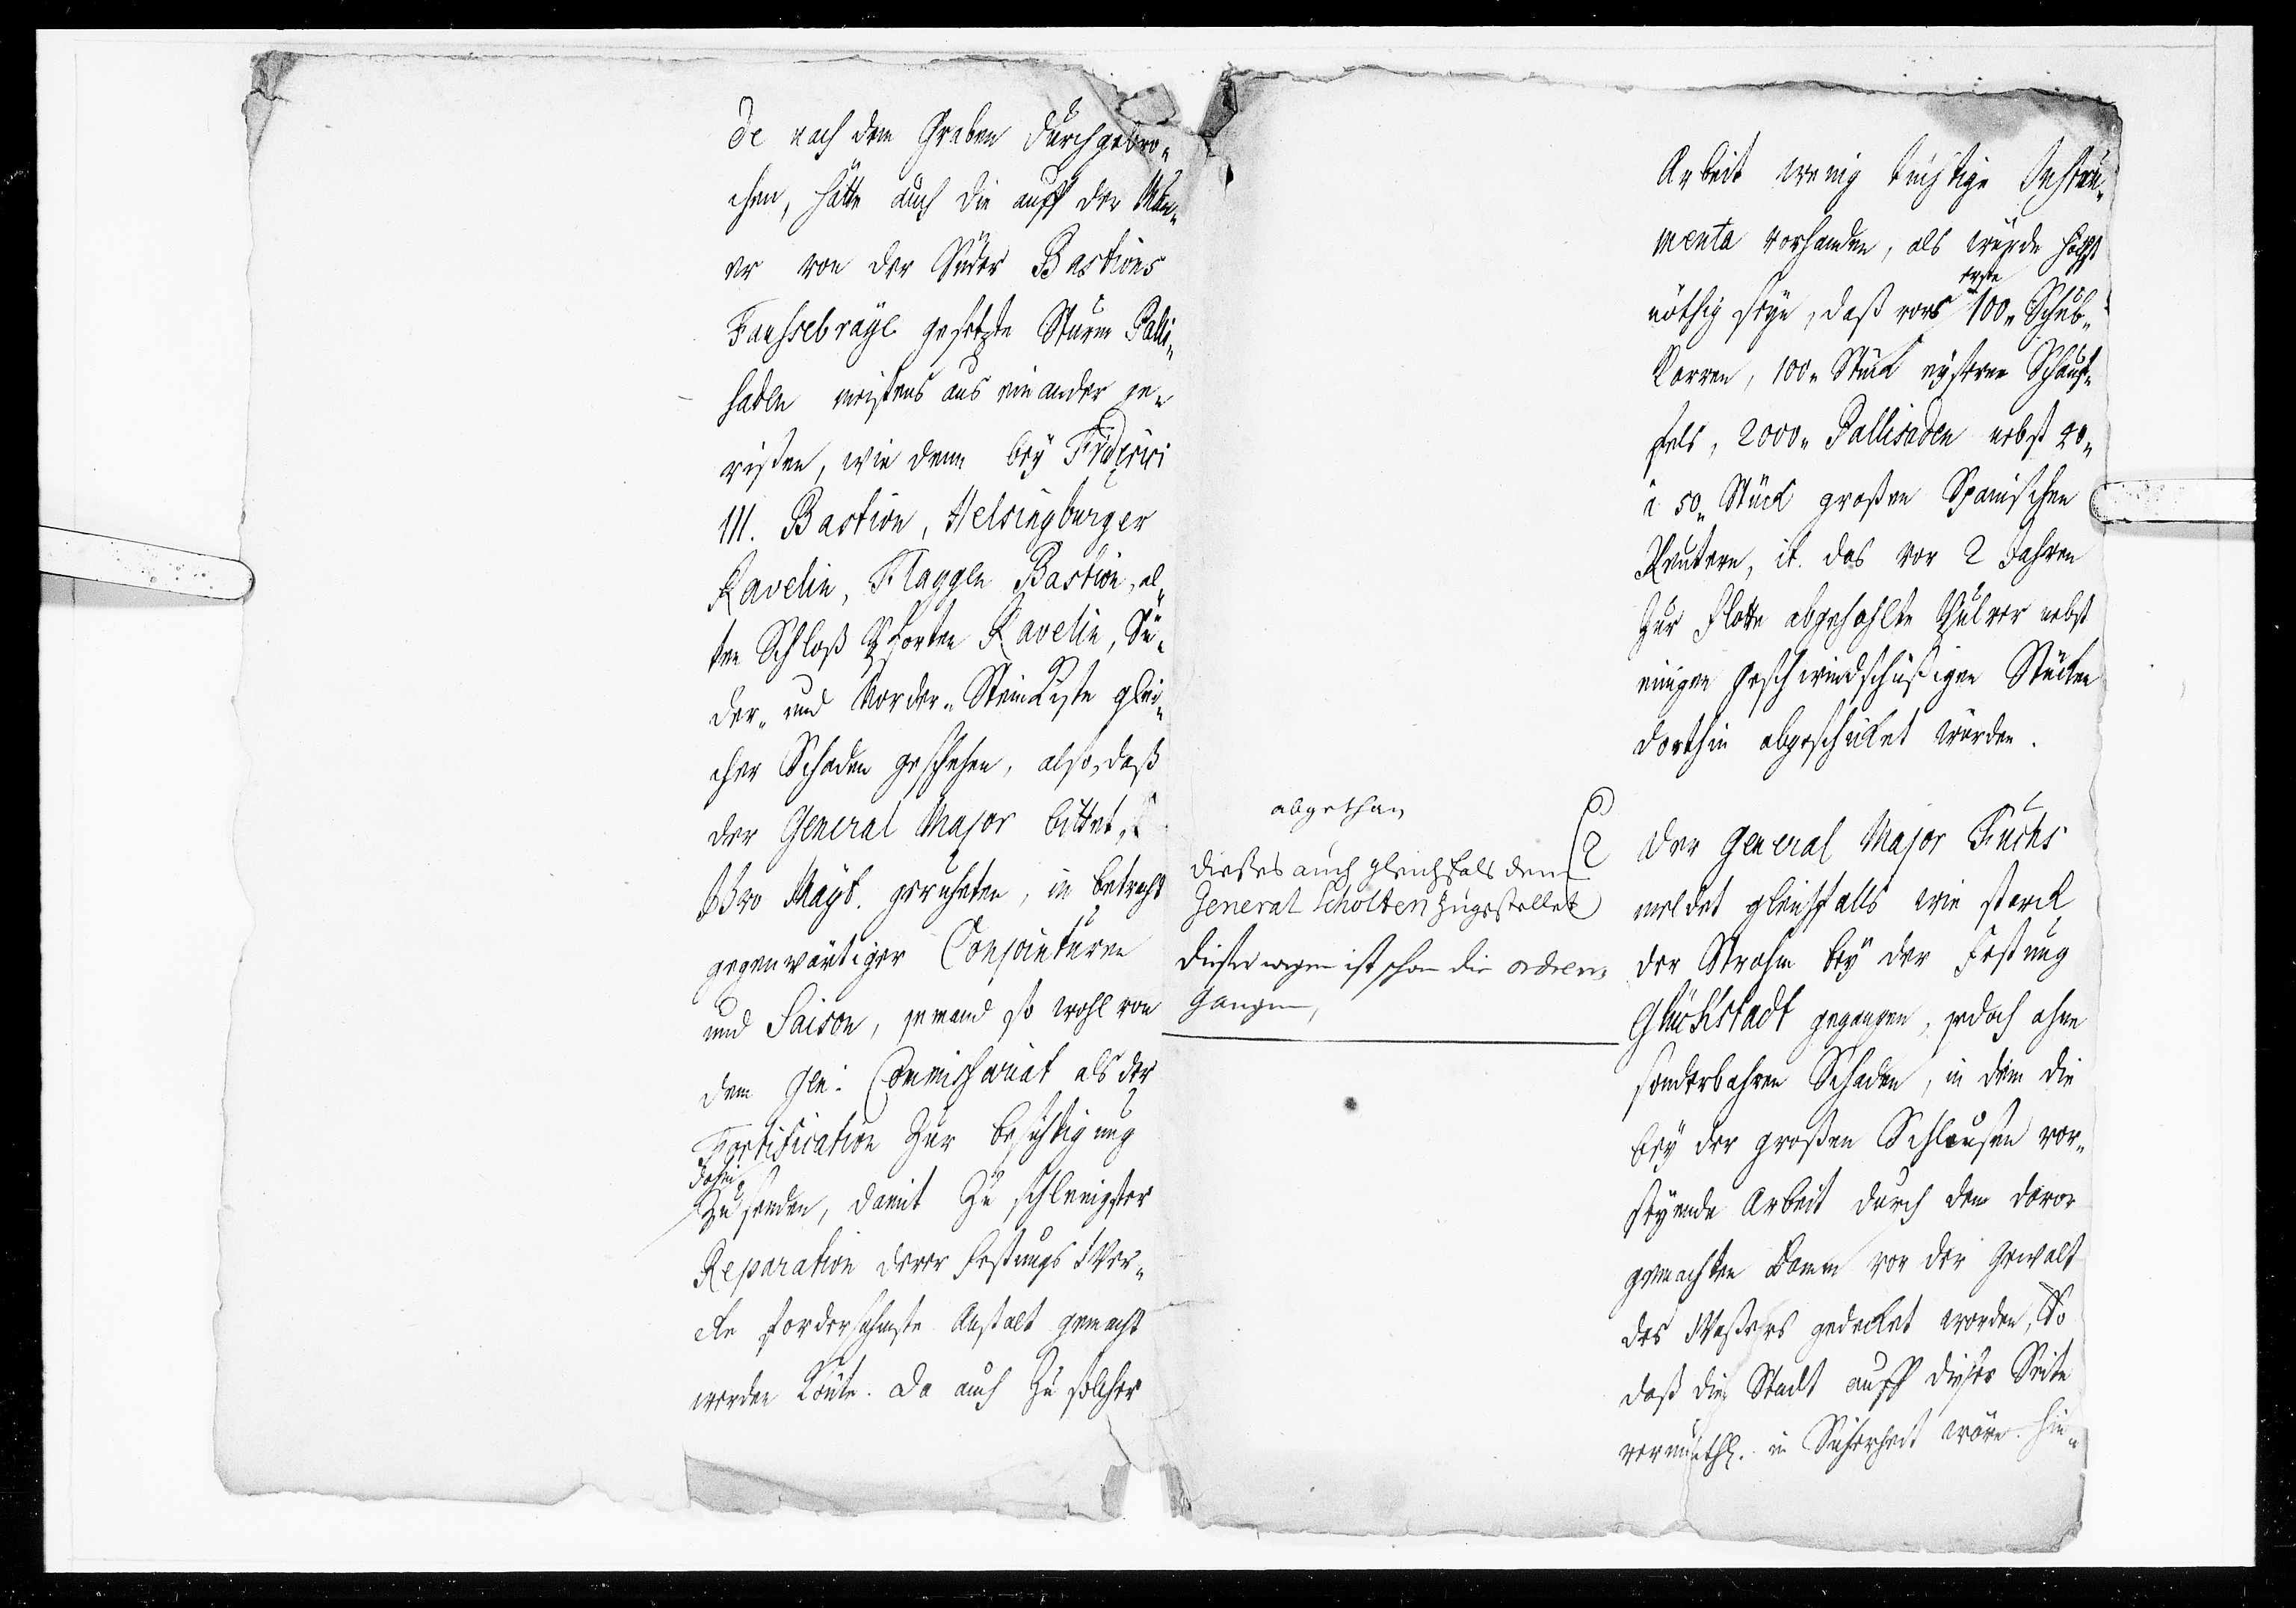 de nach dem Graben durchgebro-
chen, hätte auch die auff der Mau-
er von der Süder Bastions
Faussebraye gesetzte Sturm Palli-
saden meistens aus einander ge-
rißen, wie denn bey Friderici
III. Bastion, Helsingburger
Ravelin, Flaggen Bastion, al-
ten Schloß Pforten Ravelin, Sü-
der- und Norder-SteinKiste glei-
cher Schaden geschehen, also, daß
der General Major bittet,
Ihro Mayt. geruheten, in betracht
gegenwärtiger Conjoncturen
und Saison, jemand so wohl von
dem Gen: Commissariat als der
Fortification zur besichtigung
dahin
zu senden, damit zu schleunigster
Reparation derer Festungs Wer-
cke fordersahmste Anstalt gemacht
werden könte. Da auch zu solcher
Arbeit wenig tüchtige Instru-
menta vorhanden, als würde höchst
erste
nöthig seyn, daß vors 100. Schub-
Karren, 100. Stück eyserne Schauf-
fels, 2000. Pallisaden nebst 40.
à 50. Stück großen Spanischen
Reutern, it. das vor 2 Jahren
zur Flotte abgehohlte Pulver nebst
einigen geschwindschüßigen Stücken
dorthin abgeschicket würden.
abgethan
dießes auch gleichfals dem
General Scholten zugestellet
dießer wegen ist schon die ordre
gangen,
2
Der General Major Fuchs
meldet gleichfalls wie starck
der Strohm bey der Festung
Glückstadt gegangen, jedoch ohne
sonderbahren Schaden, in dem die
bey der großen Schleusen vor-
seyende Arbeit durch dem davor
gemachten Damm vor der Gewalt
des Waßers gedecket worden, So
daß die Stadt auff dießer Seite
vermuthl. in Sicherheit wäre. Hin-